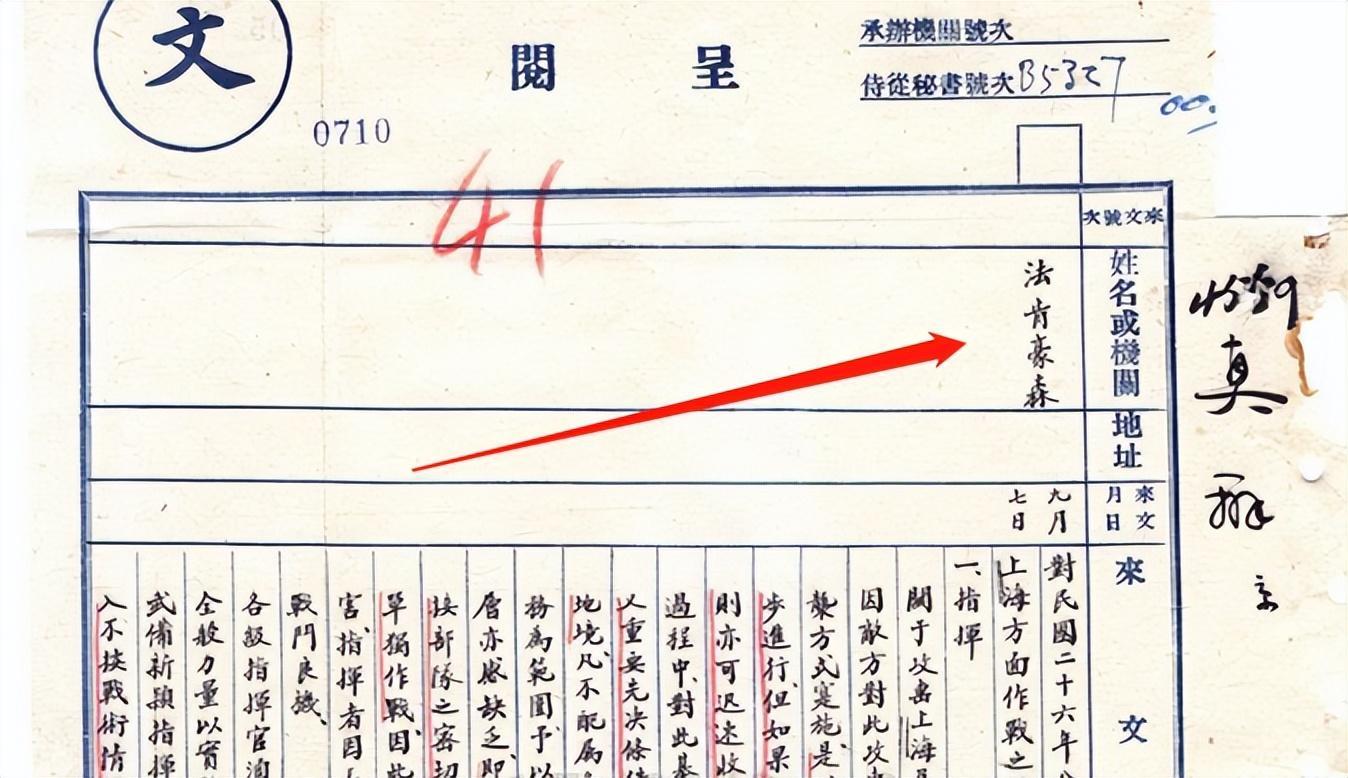 文
呈閱
0710
承辦機關號次
侍從秘書號次 B5327
41
來文號次
姓名或機關
法肯豪森
地址
來文月日
九月
七日
來文
對民國二十六年八
上海方面作戰之
一、指揮
關于攻擊上海
因敵方對此攻
襲方式實施是
步進行、但如果
則亦可迟速收
過程中、對此基
义重要先决條件
地境凡不配屬
務為範圍予以
層亦感缺乏、即
接部隊之密切
單獨作戰、因此
官、指揮者因
戰鬥良機、
各級指揮官須
全般力量以實
武備新穎指揮
入不揆戰術情
真